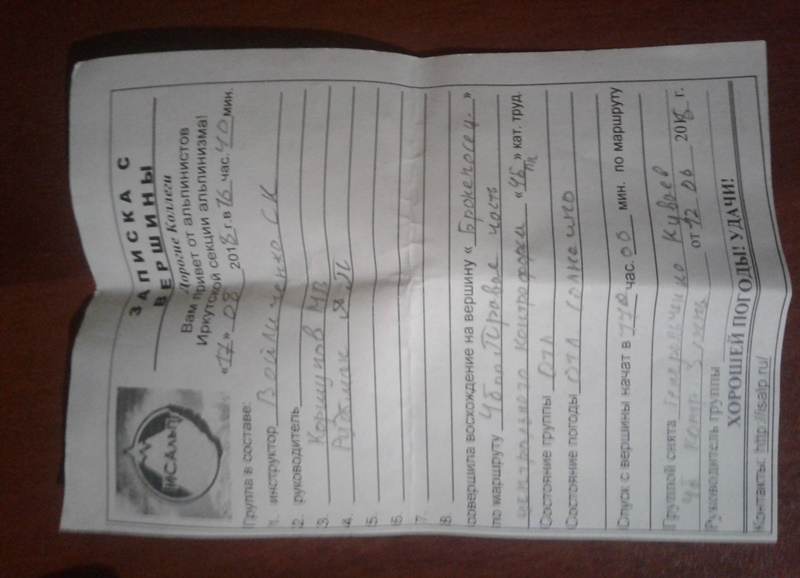 ИСАльп
ЗАПИСКА С
ВЕРШИНЫ
Дорогие Коллеги
Вам привет от альпинистов
Иркутской секции альпинизма!
«17» 08 2018 г. в 16 час. 40 мин.
Группа в составе:
1. инструктор Войличенко СК
2. руководитель
3. Коршунов
4.
5.
6.
7.
8.
совершила восхождение на вершину « »
по маршруту 4б по Правая часть
центрального контрфорса «4Б» кат. труд.
Состояние группы отл
Состояние погоды отл солнечно
Спуск с вершины начат в час. 00 мин. по маршруту
Группой снята
от 12 06 20 г.
Руководитель группы
ХОРОШЕЙ ПОГОДЫ! УДАЧИ!
Контакты: http://isalp.ru/